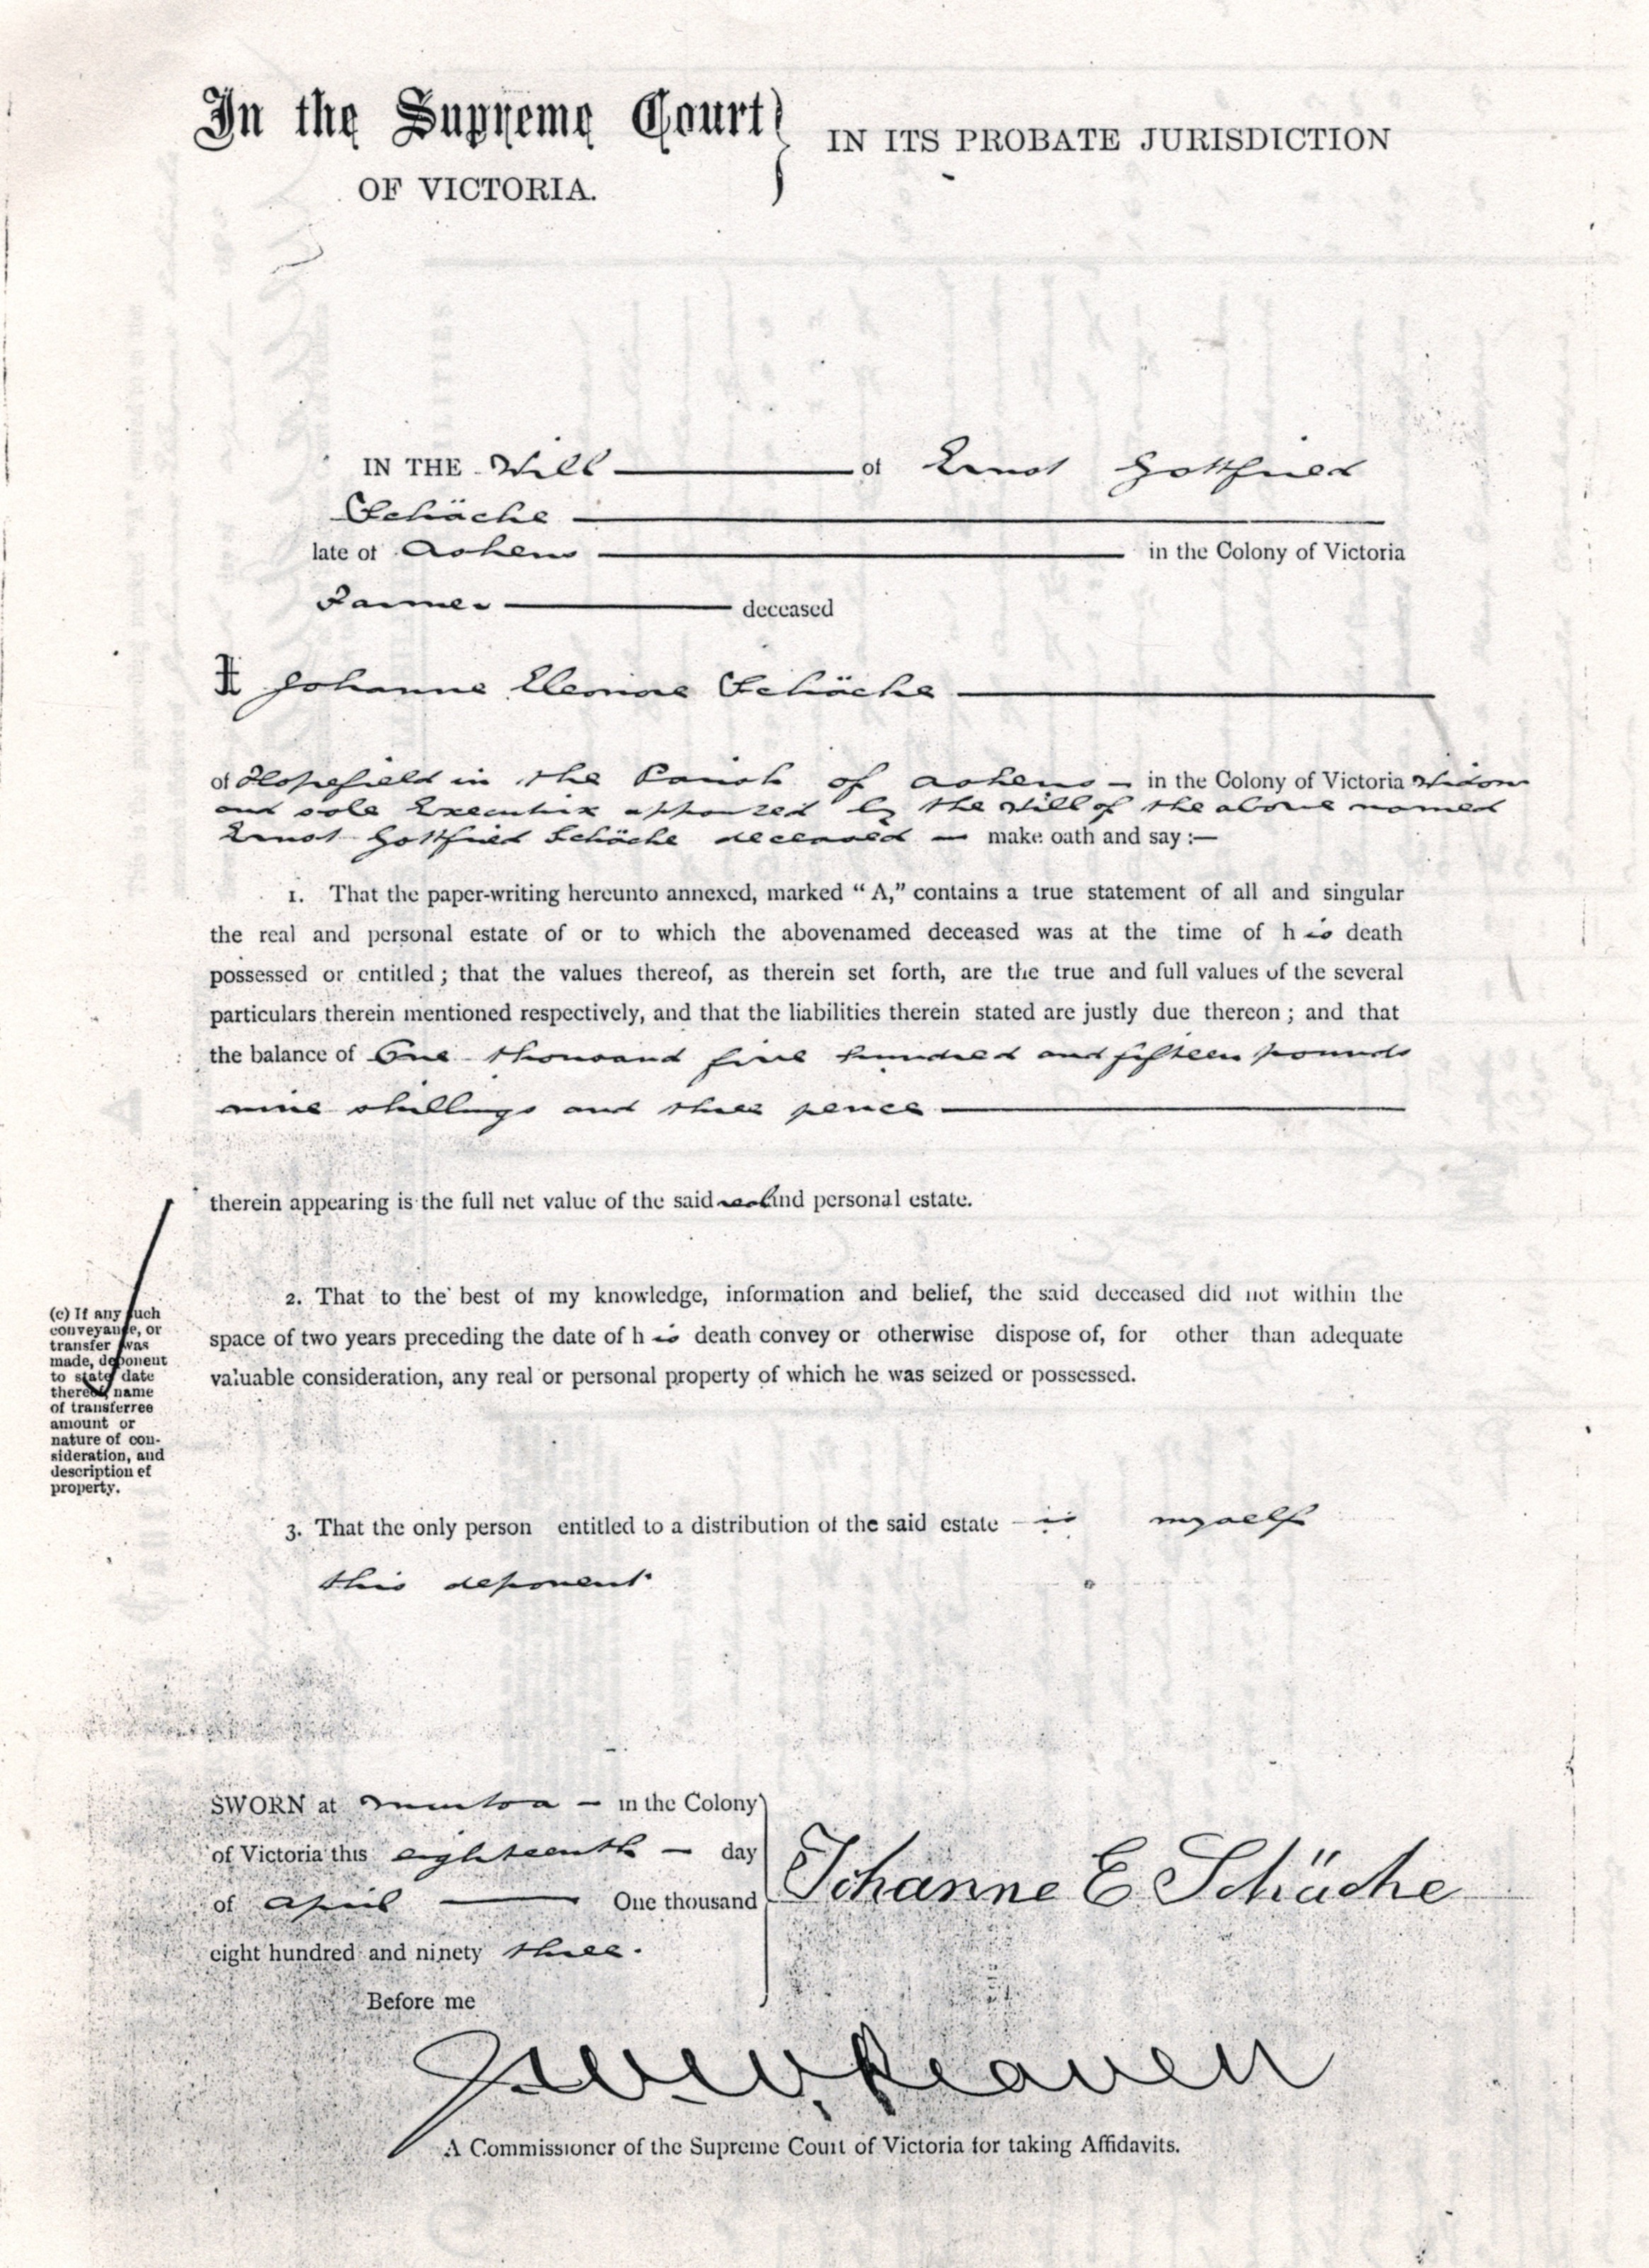 In the Supreme Court
OF VICTORIA.
IN ITS PROBATE JURISDICTION
IN THE Will of Ernst Gottfried
Schäche
late of Ashens in the Colony of Victoria
Farmer deceased
I Johanne Eleonore Schäche
of Hopefield in the Parish of Ashens – in the Colony of Victoria Widow
and sole Executrix appointed by the Will of the above named
Ernst Gottfried Schäche deceased – make oath and say :—
1. That the paper-writing hereunto annexed, marked “ A,” contains a true statement of all and singular
the real and personal estate of or to which the abovenamed deceased was at the time of his death
possessed or entitled ; that the values thereof, as therein set forth, are the true and full values of the several
particulars therein mentioned respectively, and that the liabilities therein stated are justly due thereon ; and that
the balance of One thousand five hundred and fifteen pounds
nine shillings and three pence
therein appearing is the full net value of the said real and personal estate.
2. That to the best of my knowledge, information and belief, the said deceased did not within the
space of two years preceding the date of his death convey or otherwise dispose of, for other than adequate
valuable consideration, any real or personal property of which he was seized or possessed.
(c) If any such
conveyance, or
transfer was
made, deponent
to state date
thereof, name
of transferree
amount or
nature of con-
sideration, and
description of
property.
3. That the only person entitled to a distribution of the said estate – is myself
this deponent
SWORN at Murtoa – in the Colony
of Victoria this eighteenth – day
of April One thousand
eight hundred and ninety three.
Johanne E Schäche
Before me
A Commissioner of the Supreme Court of Victoria for taking Affidavits.